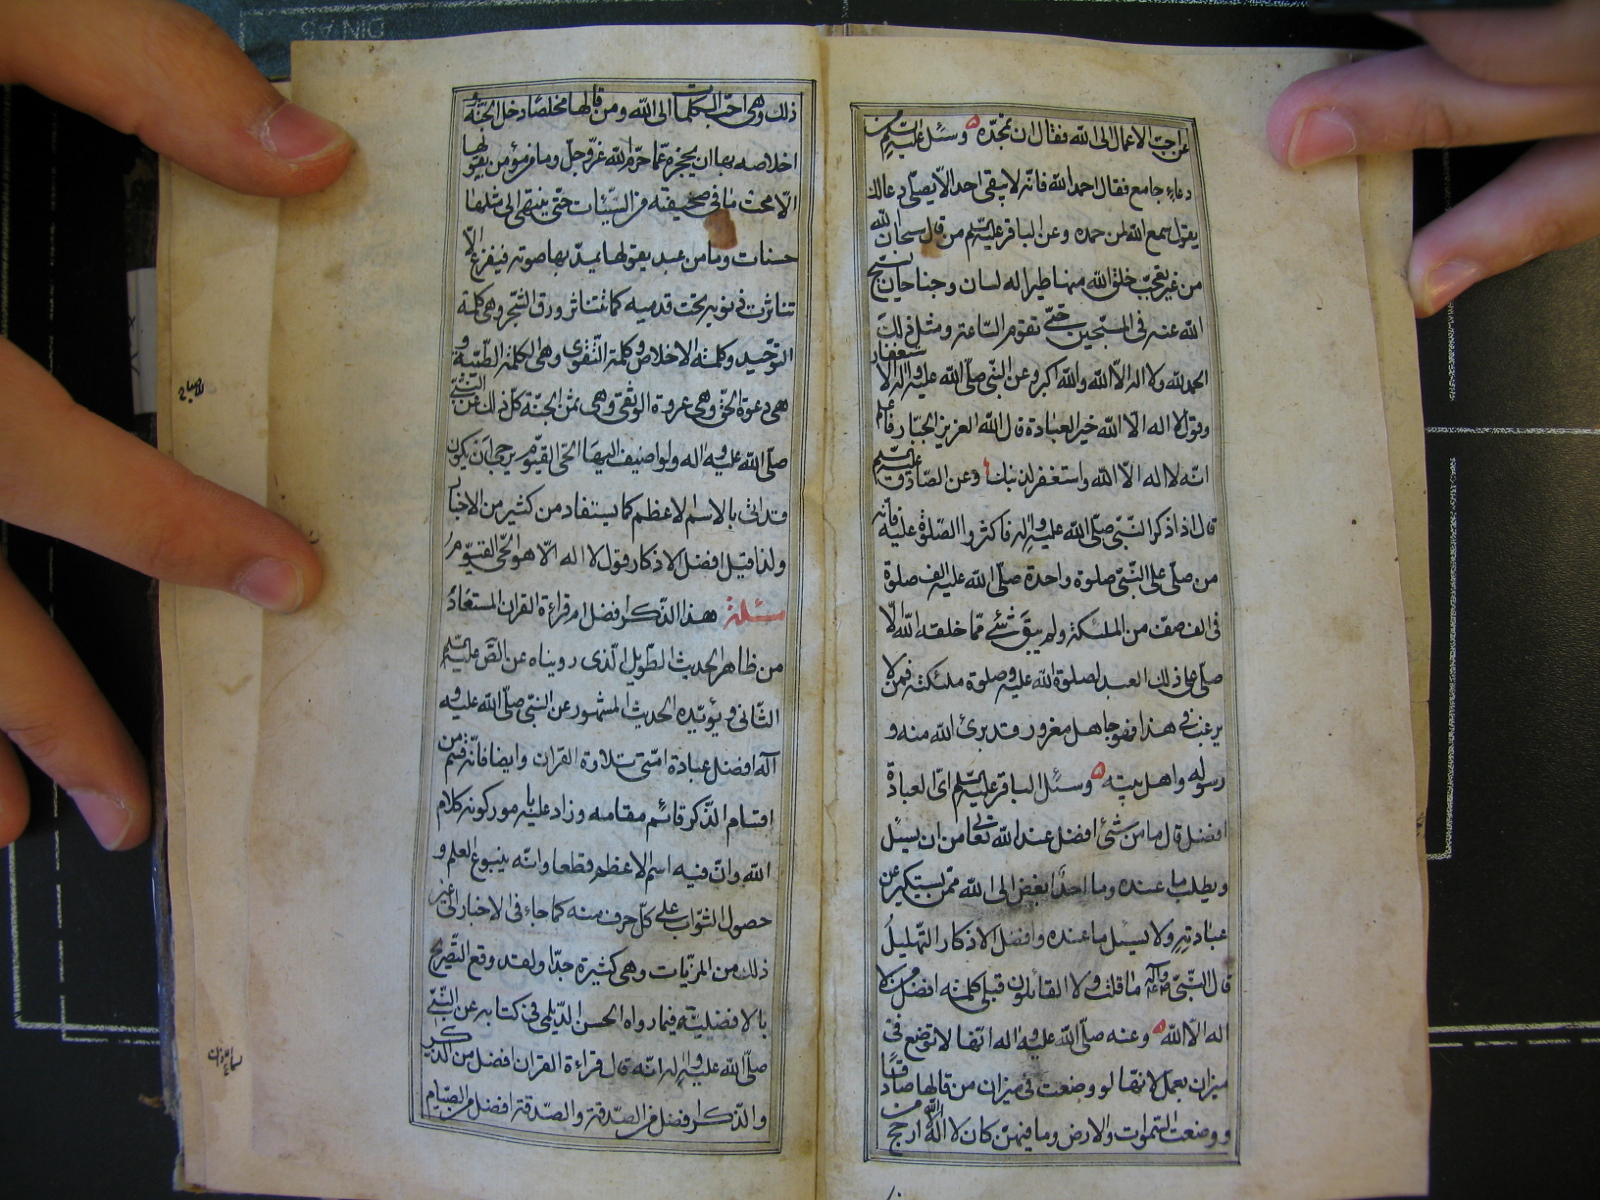 عن احبّ الاعمال الى الله فقال ان تمجّده وسئل عليه السلم عن
دعاءٍ جامع فقال احمد الله فانّه لا يبقى احد الّا يصلّى دعا لك
يقول سمع الله لمن حمده وعن الباقر عليه السلم من قال سبحان الله
من غير تعجّب خلق الله منها طيرا له لسان وجناحان تسبّح
الله عنه فى المسبّحين حتّى تقوم السّاعة ومثل ذلك
الحمد لله ولا اله الّا الله والله اكبر وعن النّبى صلّى الله عليه واله الاستغفار
وقول لا اله الّا الله خير العبادة قال الله العزيز الجبّار فاعلم
انّه لا اله الّا الله واستغفر لذنبك وعن الصّادق عليه السلم
قال اذا ذكر النّبى صلّى الله عليه واله فاكثروا الصّلوة عليه فانّه
من صلّى على النّبىّ صلوة واحدة صلّى الله عليه الف صلوة
فى الف صفّ من الملئكة ولم يبق شئ ممّا خلقه الله الّا
صلّى على ذلك العبد لصلوة الله عليه وصلوة ملئكته فمن لا
يرغب فى هذا فهو جاهل مغرور قد برئ الله منه و
رسوله واهل بيته وسئل الباقر عليه السلم اىّ العبادة
افضل قال ما من شئ افضل عند الله تعالى من ان يسئل
ويطلب ما عنده وما احدٌ ابغض الى الله ممّن يستكبر عن
عبادته ولا يسئل ما عنده وافضل الاذكار التّهليل
قال النّبىّ ما قلت ولا القائلون قبلى كلمة افضل من لا
اله الّا الله وعنه صلّى الله عليه واله انّها لا توضع فى
ميزان بعمل لانّها لو وضعت فى ميزان من قالها صادقًا
ووضعت السّموات والارض وما فيهنّ كان لا اله الّا الله ارجح من
ذلك وهى احبّ الكلمات الى الله ومن قالها مخلصًا دخل الجنّة و
اخلاصه بها ان يحجزه عمّا حرّم الله عزّ وجلّ وما من مؤمن يقولها
الّا محت ما فى صحيفته من السّيّئات حتّى ينتهى الى مثلها
حسنات وما من عبد يقولها يمدّ بها صوته فيفرغ الّا
تناثرت ذنوبه تحت قدميه كما تتناثر ورق الشّجر وهى كلمة
التوحيد وكلمة الاخلاص وكلمة التّقوى وهى الكلمة الطّيّبة و
هى دعوة الحقّ وهى عروة الوثقى وهى ثمن الجنّة كلّ ذلك عن النّبىّ
صلّى الله عليه واله ولو اضيف اليها الحىّ القيّوم يرجى ان يكون
قد اتى بالاسم الاعظم كما يستفاد من كثير من الاخبار
ولذا قيل افضل الاذكار قول لا اله الّا هو الحىّ القيّوم
مسئلة هذا الذّكر افضل ام قراءة القران المستفاد
من ظاهر الحديث الطّويل الّذى رويناه عن الصّ عليه السلم
الثّانى ويؤيّده الحديث المشهور عن النبىّ صلّى الله عليه و
آله افضل عبادة امّتى تلاوة القران وايضا فانّه قسم من
اقسام الذّكر قائم مقامه وزاد عليه بامور كونه كلام
الله وانّ فيه اسم الاعظم قطعا وانّه ينبوع العلم و
حصول الثّواب على كلّ حرف منه كما جاء فى الاخبار الى غير
ذلك من المزيّات وهى كثيرة جدّا ولقد وقع التّصريح
بالافضليّة فيما رواه الحسن الدّيلمى فى كتابه عن النّبىّ
صلّى الله عليه واله انّه قال قراءة القران افضل من الذّكر
والذّكر افضل من الصّدقة والصّدقة افضل من الصّيام